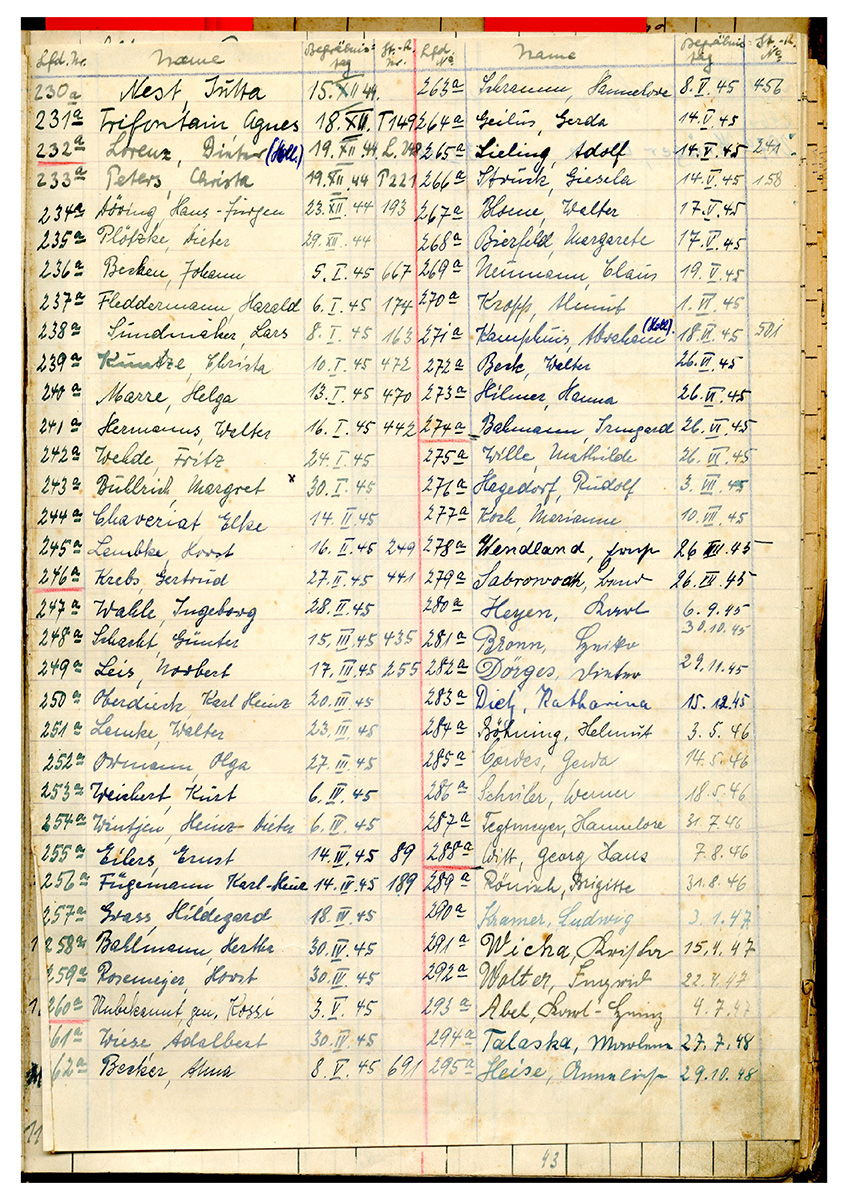 Lfd. Nr. Name Begräbnistag St.-R. Nr.
230a Nest, Jutta 15.XII.44
231a Trifontain, Agnes 18.XII. T149
232a Lorenz, Dieter (Holl.) 19.XII.44 L.
233a Peters, Christa 19.XII.44 P221
234a Döring, Hans-Jürgen 23.XII.44 193
235a Plötzke, Dieter 29.XII.44
236a Becken, Johann 5.I.45 667
237a Fleddermann, Harald 6.I.45 174
238a Sundmaker, Lars 8.I.45 163
239a Kuntze, Christa 10.I.45 472
240a Marre, Helga 13.I.45 470
241a Hermanns, Walter 16.I.45 442
242a Wehde, Fritz 24.I.45
243a Bullrich, Margret x 30.I.45
244a Chaveriat Elke 14.II.45
245a Lembke, Horst 16.II.45 249
246a Krebs, Gertrud 27.II.45 441
247a Wahle, Ingeborg 28.II.45
248a Schacht, Günter 15.III.45 435
249a Leis, Norbert 17.III.45 255
250a Oberdieck, Karl Heinz 20.III.45
251a Lemke, Walter 23.III.45
252a Ormann, Olga 27.III.45
253a Weichert, Kurt 6.IV.45
254a Wintjen, Heinz-Dieter 6.IV.45
255a Eilers, Ernst 14.IV.45 89
256a Fügemann Karl-Heinz 14.IV.45 189
257a Grass, Hildegard 18.IV.45
258a Bahlmann, Hertha 30.IV.45
259a Rosemeyer, Horst 30.IV.45
260a Unbekannt gen. Kossi 3.V.45
61a Wiese Adalbert 30.IV.45
62a Becker, Anna 8.V.45 691
Lfd. No Name Begräbnistag St.-R. No
263a Schramm, Hannelore 8.V.45 456
264a Geilus, Gerda 14.V.45
265a Lieling, Adolf 14.V.45 241
266a Struck, Giesela 14.V.45 158
267a Blome, Walter 17.V.45
268a Bierfeld, Margarete 17.V.45
269a Neumann, Claus 19.V.45
270a Kropp, Almut 1.VI.45
271a Kamphuis, Abraham (Holl.) 18.VI.45 501
272a Beck, Walter 26.VI.45
273a Hilmer, Hanna 26.VI.45
274a Bahmann, Irmgard 26.VI.45
275a Wille, Mathilde 26.VI.45
276a Hagedorf, Rudolf 3.VII.45
277a Koch, Marianne 10.VII.45
278a Wendland, 26 45
279a 26. 45
280a Heyen, Karl 6.9.45
281a Bronn, 30.10.45
282a Dörges, Dieter 29.11.45
283a Dietz, Katharina 15.12.45
284a Böhning, Helmut 3.5.46
285a Cordes, Gerda 14.5.46
286a Schüler, Werner 18.5.46
287a Tegtmeyer, Hannelore 31.7.46
288a Witt, Georg Hans 7.8.46
289a Rönisch, Brigitte 31.8.46
290a Kramer, Ludwig 3.1.47
291a Wicha, 15.4.47
292a Wolter, Ingrid 22.4.47
293a Abel, Karl-Heinz 4.7.47
294a Talaska, Marlene 27.7.48
295a Heise, Anneliese 29.10.48
43